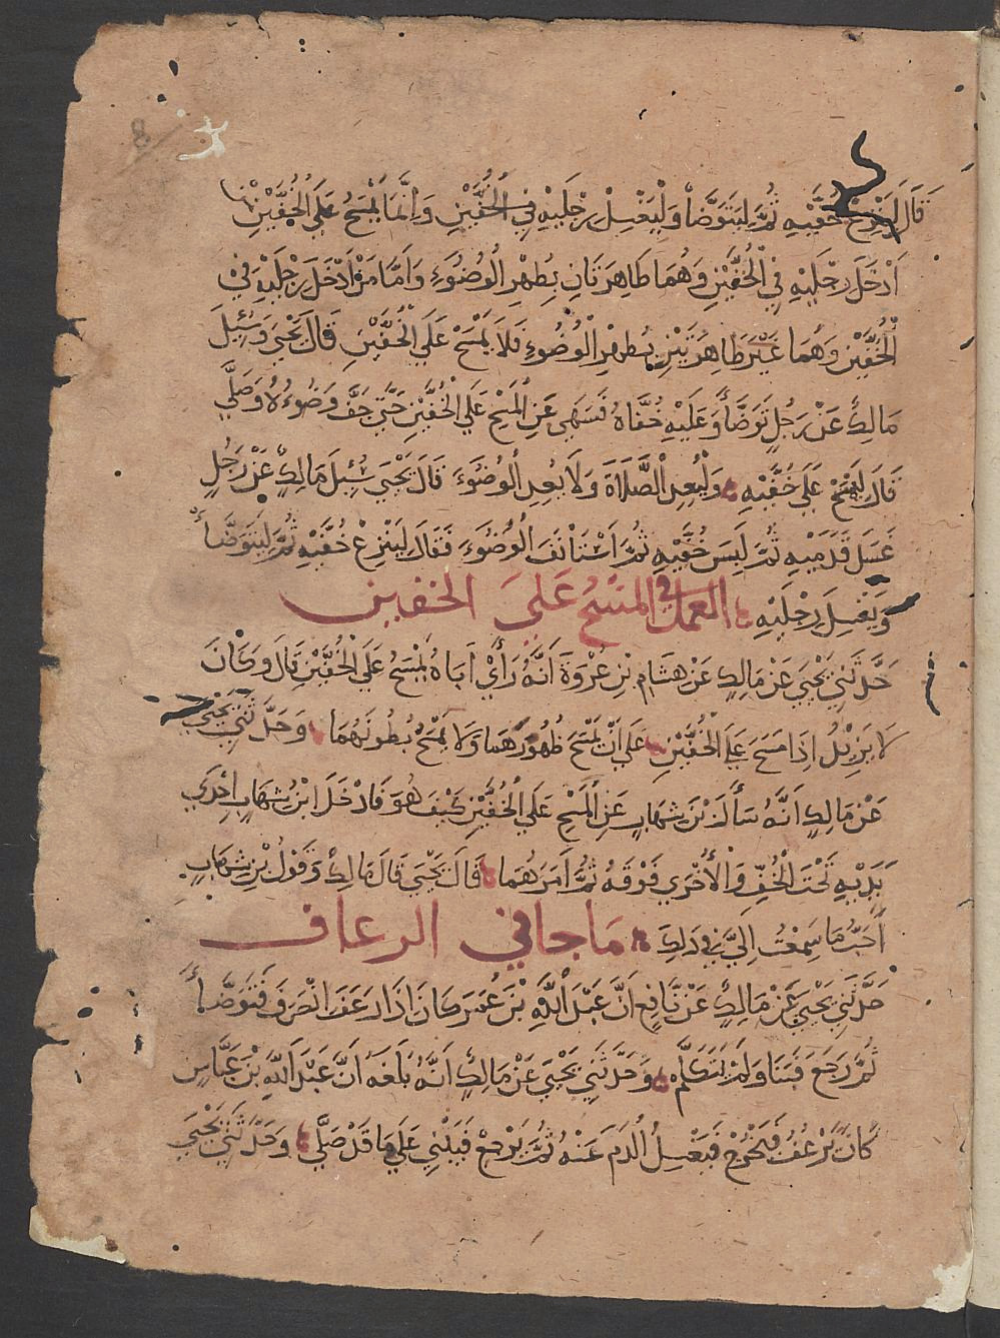 قَالَ لِيَنْزِعْ خُفَّيْهِ ثُمَّ لِيَتَوَضَّأْ وَلْيَغْسِلْ رِجْلَيْهِ فِي الْخُفَّيْنِ وَإِنَّمَا يَمْسَحُ عَلَي الْخُفَّيْنِ مَنْ
اَدْخَلَ رِجْلَيْهِ فِي الْخُفَّيْنِ وَهُمَا طَاهِرَتَانِ بِطُهْرِ الْوُضُوءِ وَاَمَّا مَنْ اَدْخَلَ رِجْلَيْهِ فِي
الْخُفَّيْنِ وَهُمَا غَيْرَ طَاهِرَتَيْنِ بِطُهْرِ الْوُضُوءِ فَلَا يَمْسَحْ عَلَي الْخُفَّيْنِ قَالَ يَحْيَي وَسُئِلَ
مَالِكٌ عَنْ رَجُلٍ تَوَضَّأَ وَعَلَيْهِ خُفَّاهُ فَسَهَي عَنِ الْمَسْحِ عَلَي الْخُفَّيْنِ حَتَّي جَفَّ وَضُوءُهُ وَصَلَّي
قَالَ لِيَمْسَحْ عَلَي خُفَّيْهِ وَلْيُعِدِ الصَّلَاةَ وَلَا يُعِدِ الْوُضُوءَ قَالَ يَحْيَي سُئِلَ مَالِكٌ عَنْ رَجُلٍ
غَسَلَ قَدَمَيْهِ ثُمَّ لَبِسَ خُفَّيْهِ ثُمَّ اسْتَانَفَ الْوُضُوءَ فَقَالَ لِيَنْزِعْ خُفَّيْهِ ثُمَّ لِيَتَوَضَّأْ
وَيَغْسِلَ رِجْلَيْهِ العمل في المَسْحِ عَلَيَ الخفين
حَدَّثَنِي يَحْيَي عَنْ مَالِكٍ عَنْ هِشَامِ بْنِ عُرْوَةَ اَنَّهُ رَأَيْ اَبَاهُ يَمْسَحُ عَلَي الْخُفَّيْنِ قَالَ وَكَانَ
لَا يَزِيْدُ اِذَا مَسَحَ عَلَي الْخُفَّيْنِ عَلَي اَنْ يَمْسَحَ ظُهُورَهُمَا وَلَا يَمْسَحُ بُطُونَهُمَا وَحَدَّثَنِي يَحْيَي
عَنْ مَالِكٍ اَنَّهُ سَأَلَ بْنَ شِهَابٍ عَنِ الْمَسْحِ عَلَي الْخُفَّيْنِ كَيْفَ هُوَ فَادْخَلَ ابْنُ شِهَابٍ اِحْدَي
يَدَيْهِ تَحْتَ الْخُفِّ وَالْأُخْرَي فَوْقَهُ ثُمَّ اَمَرَهُمَا قَالَ يَحْيَي قَالَ مَالِكٌ وَقَوْلُ بْنِ شِهَابٍ
اَحَبُّ مَا سَمِعْتُ اِلَيَّ فِي ذَلِكَ مَاجافي الرعاف
حَدَّثَنِي يَحْيَي عَنْ مَالِكٍ عَنْ نَّافِعٍ اَنَّ عَبْدَ اللَّهِ بْنَ عُمَرَ كَانَ اِذَا رَعَفَ انْصَرَفَ فَتَوَضَّأَ
ثُمَّ رَجَعَ فَبَنَا وَلَمْ يَتَكَلَّمْ وَحَدَّثَنِي يَحْيَي عَنْ مَالِكٍ اَنَّهُ بَلَغَهُ اَنَّ عَبْدَ اللَّهِ بْنَ عَبَّاسٍ
كَانَ يَرْعُفُ فَيَخْرُجُ فَيَغْسِلُ الدَّمَ عَنْهُ ثُمَّ يَرْجِعُ فَيَبْنِي عَلَي مَا قَدْ صَلَّي وَحَدَّثَنِي يَحْيَي